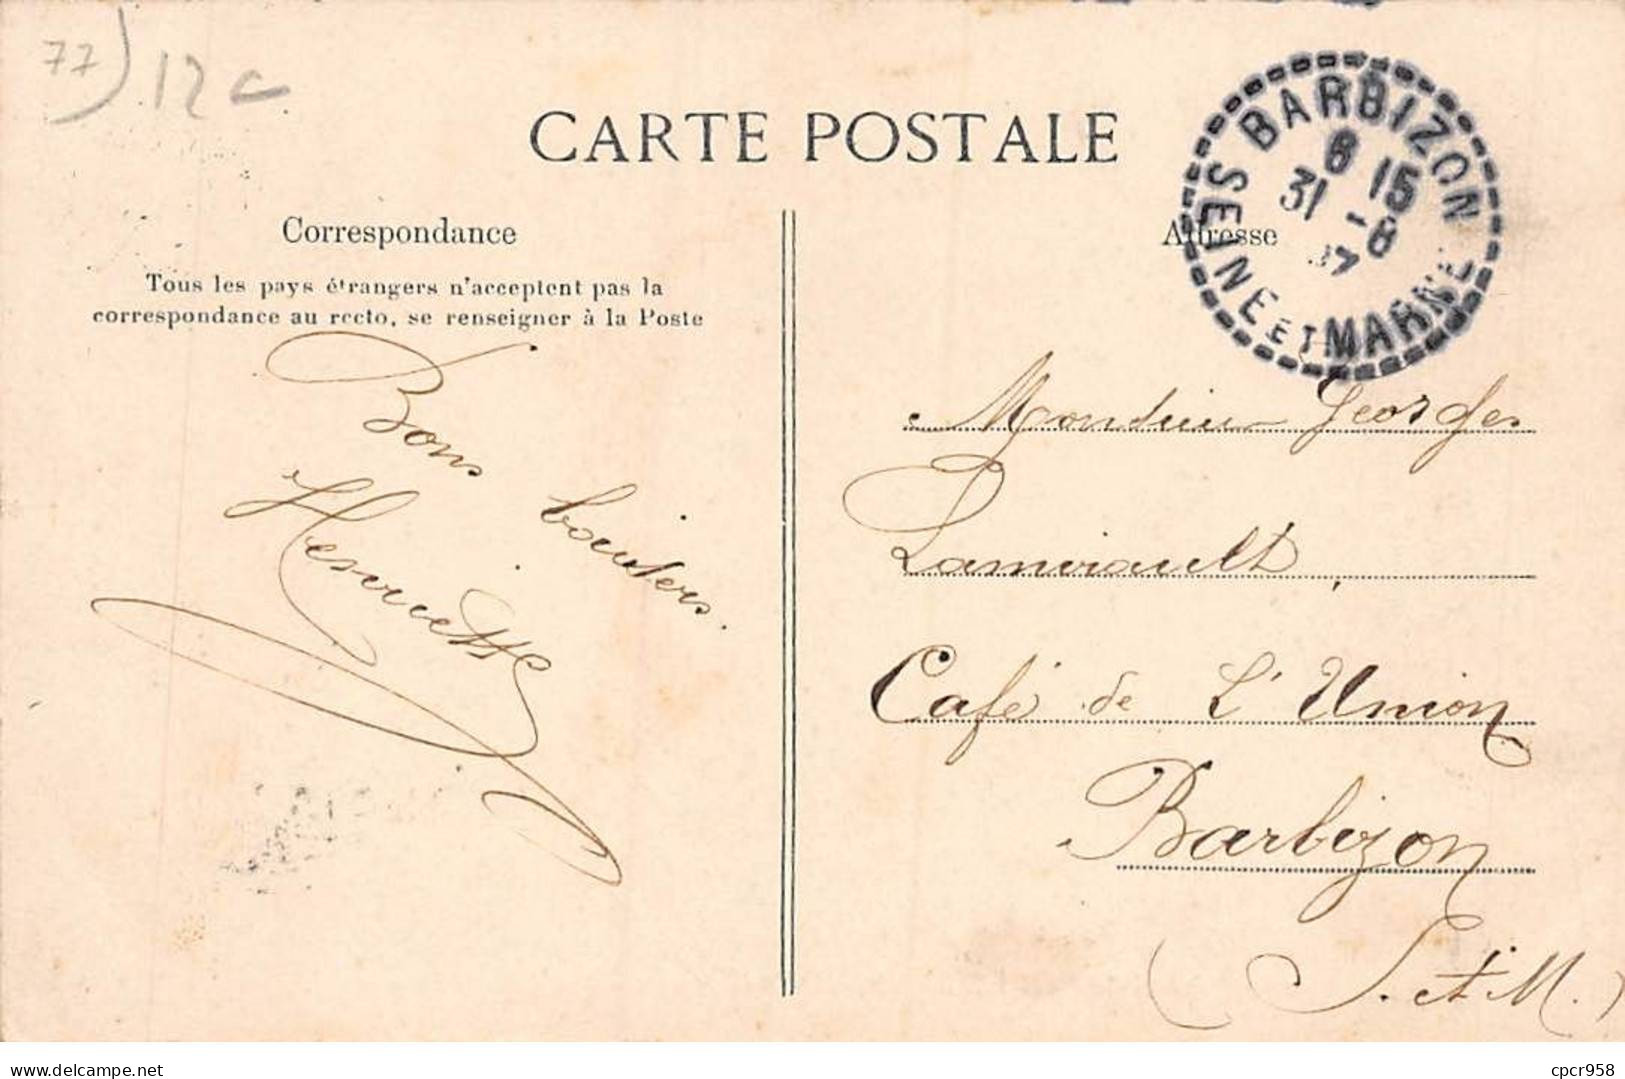 77) 12 c
CARTE POSTALE
BARBIZON
8 15
31 -8
SEINE ET MARNE
Correspondance
Adresse
Tous les pays étrangers n'acceptent pas la
correspondance au recto, se renseigner à la Poste
Bons baisers.
Henriette
Monsieur Georges
Lamirault,
Café de L'Union
Barbizon
(S. et M.)
delcampe.net
cpcr958